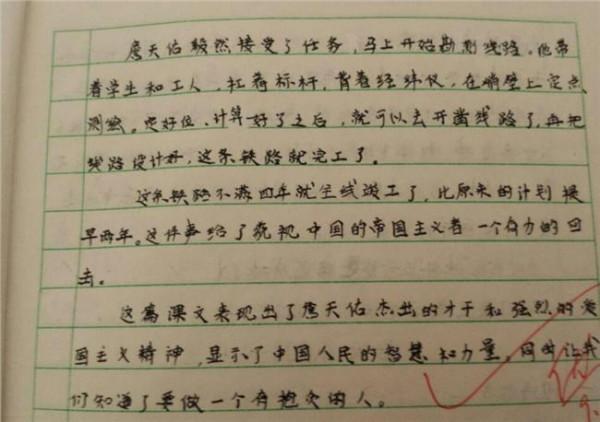 詹天佑毅然接受了任务，马上开始勘测线路。他带
着学生和工人，扛着标杆，背着经纬仪，在峭壁上定点
测绘。定好位、计算好了之后，就可以去开凿线路了，再把
线路设计好，这条铁路就完工了。
这条铁路不满四年就全线竣工了，比原来的计划提
早两年。这件事给了藐视中国的帝国主义者一个有力的回
击。
这篇课文表现出了詹天佑杰出的才干和强烈的爱
国主义精神，显示了中国人民的智慧和力量。同时让我
们知道了要做一个有抱负的人。
优